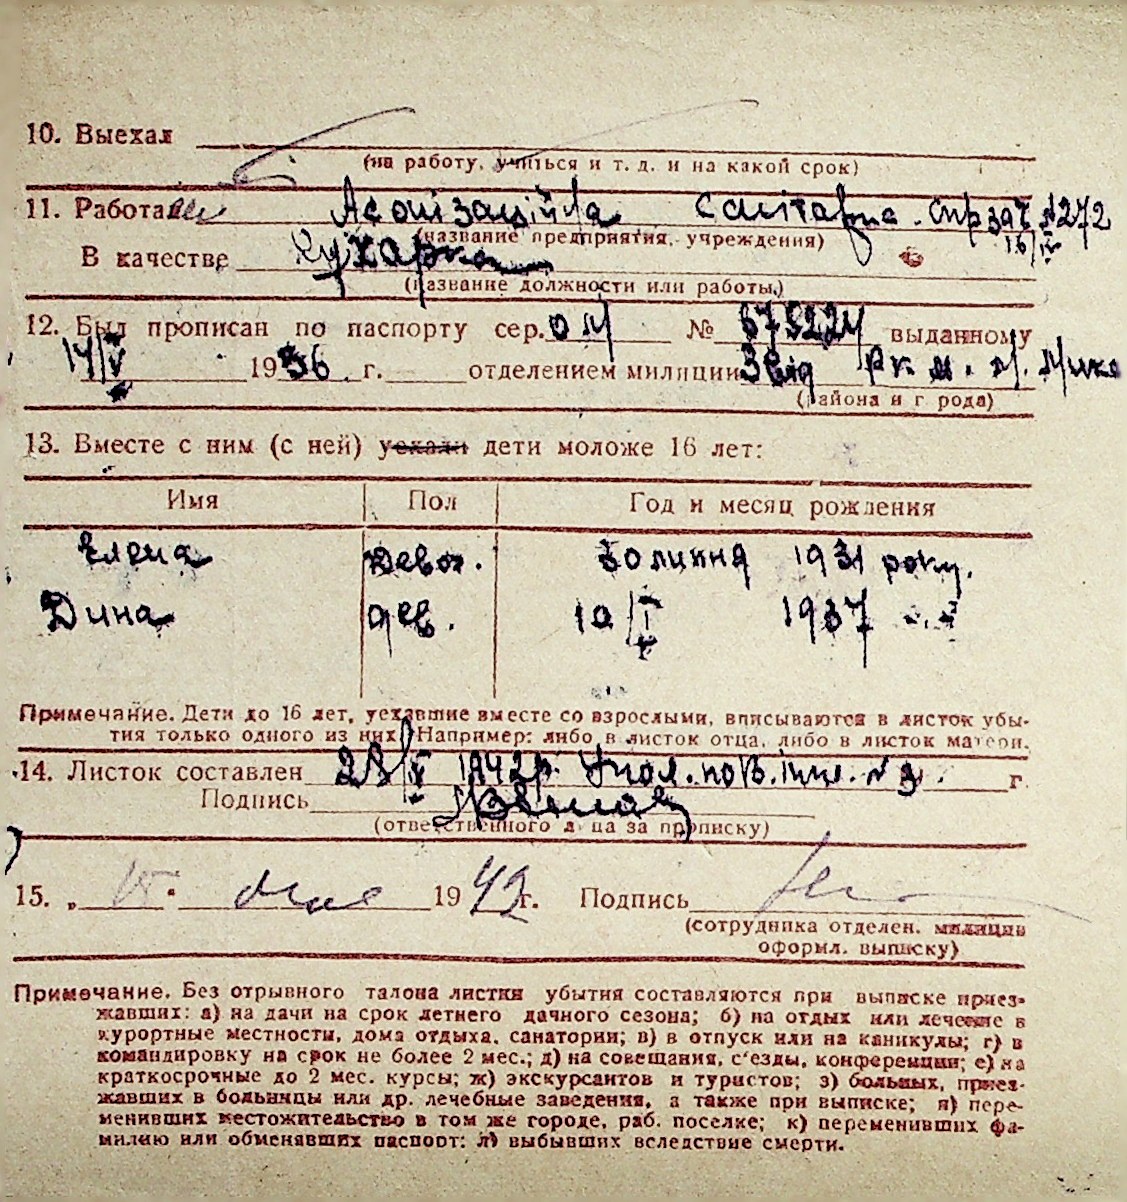 10. Выехал
(на работу, учиться и т. д. и на какой срок)
11. Работа № 272
(название предприятия, учреждения)
В качестве Кухарка
(название должности или работы)
12. Был прописан по паспорту сер. № выданному
14/V 1936 г. отделением милиции
(района и города)
13. Вместе с ним (с ней) уехали дети моложе 16 лет:
Имя Пол Год и месяц рождения
Елена девоч. 1931 року.
Дина дев. 10/I 1937
Примечание. Дети до 16 лет, уехавшие вместе со взрослыми, вписываются в листок убы-
тия только одного из них. Например: либо в листок отца, либо в листок матери.
14. Листок составлен 1942р. г.
Подпись
(ответственного лица за прописку)
15. „ " мае 1942 г. Подпись
(сотрудника отделен. милиции
оформл. выписку)
Примечание. Без отрывного талона листки убытия составляются при выписке приез-
жавших: а) на дачи на срок летнего дачного сезона; б) на отдых или лечение в
курортные местности, дома отдыха, санатории; в) в отпуск или на каникулы; г) в
командировку на срок не более 2 мес.; д) на совещания, с'езды, конференции; е) на
краткосрочные до 2 мес. курсы; ж) экскурсантов и туристов; з) больных, приез-
жавших в больницы или др. лечебные заведения, а также при выписке; и) пере-
менивших местожительство в том же городе, раб. поселке; к) переменивших фа-
милию или обменявших паспорт: л) выбывших вследствие смерти.